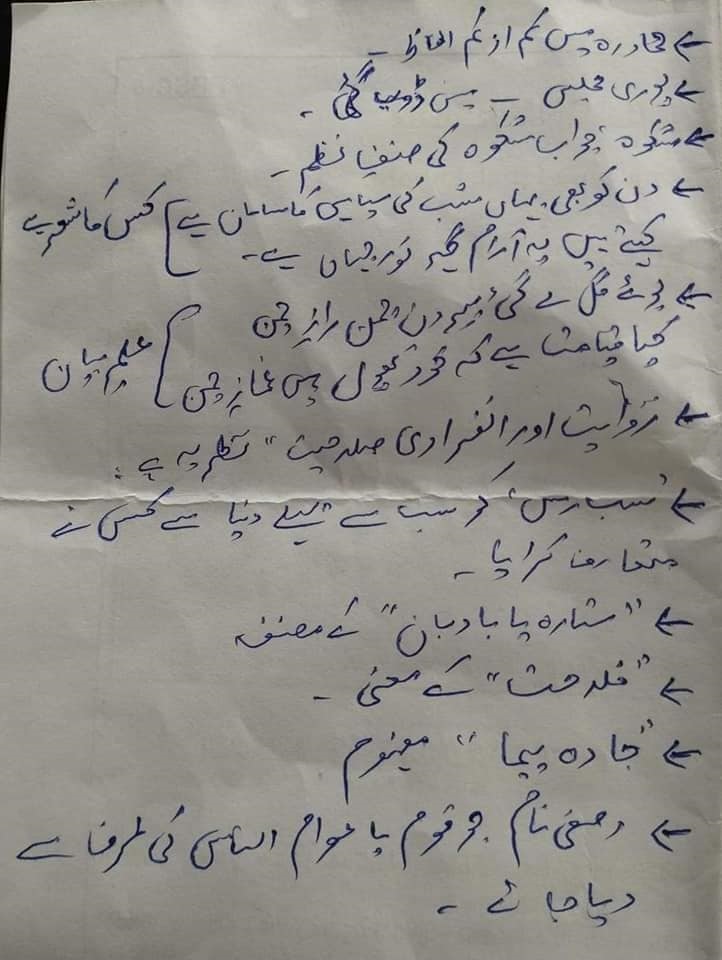 ← محاورہ میں کم از کم الفاظ ۔
← پوری مجلس ۔ میں ڈوب گئی ۔
← شکوہ جواب شکوہ کی صنفِ نظم ۔
← دن کو بھی یہاں شب کی سیاہی کا سماں ہے ] کس کا شعر ہے
کہتے ہیں یہ آرام گہہ نور جہاں ہے ۔
← بوئے گل لے گئی بیرونِ چمن رازِ چمن
کیا قیامت ہے کہ خود پھول ہیں غمازِ چمن ] علم بیان
← "روایت اور انفرادی صلاحیت" نظریہ ہے :
← 'سب رس' کو سب سے پہلے دنیا سے کس نے
متعارف کرایا ۔
← "ستارہ یا بادبان" کے مصنف
← "فلاحت" کے معنی ۔
← "جادہ پیما" مفہوم
← وصفی نام جو قوم یا عوام الناس کی طرف سے
دیا جائے ۔